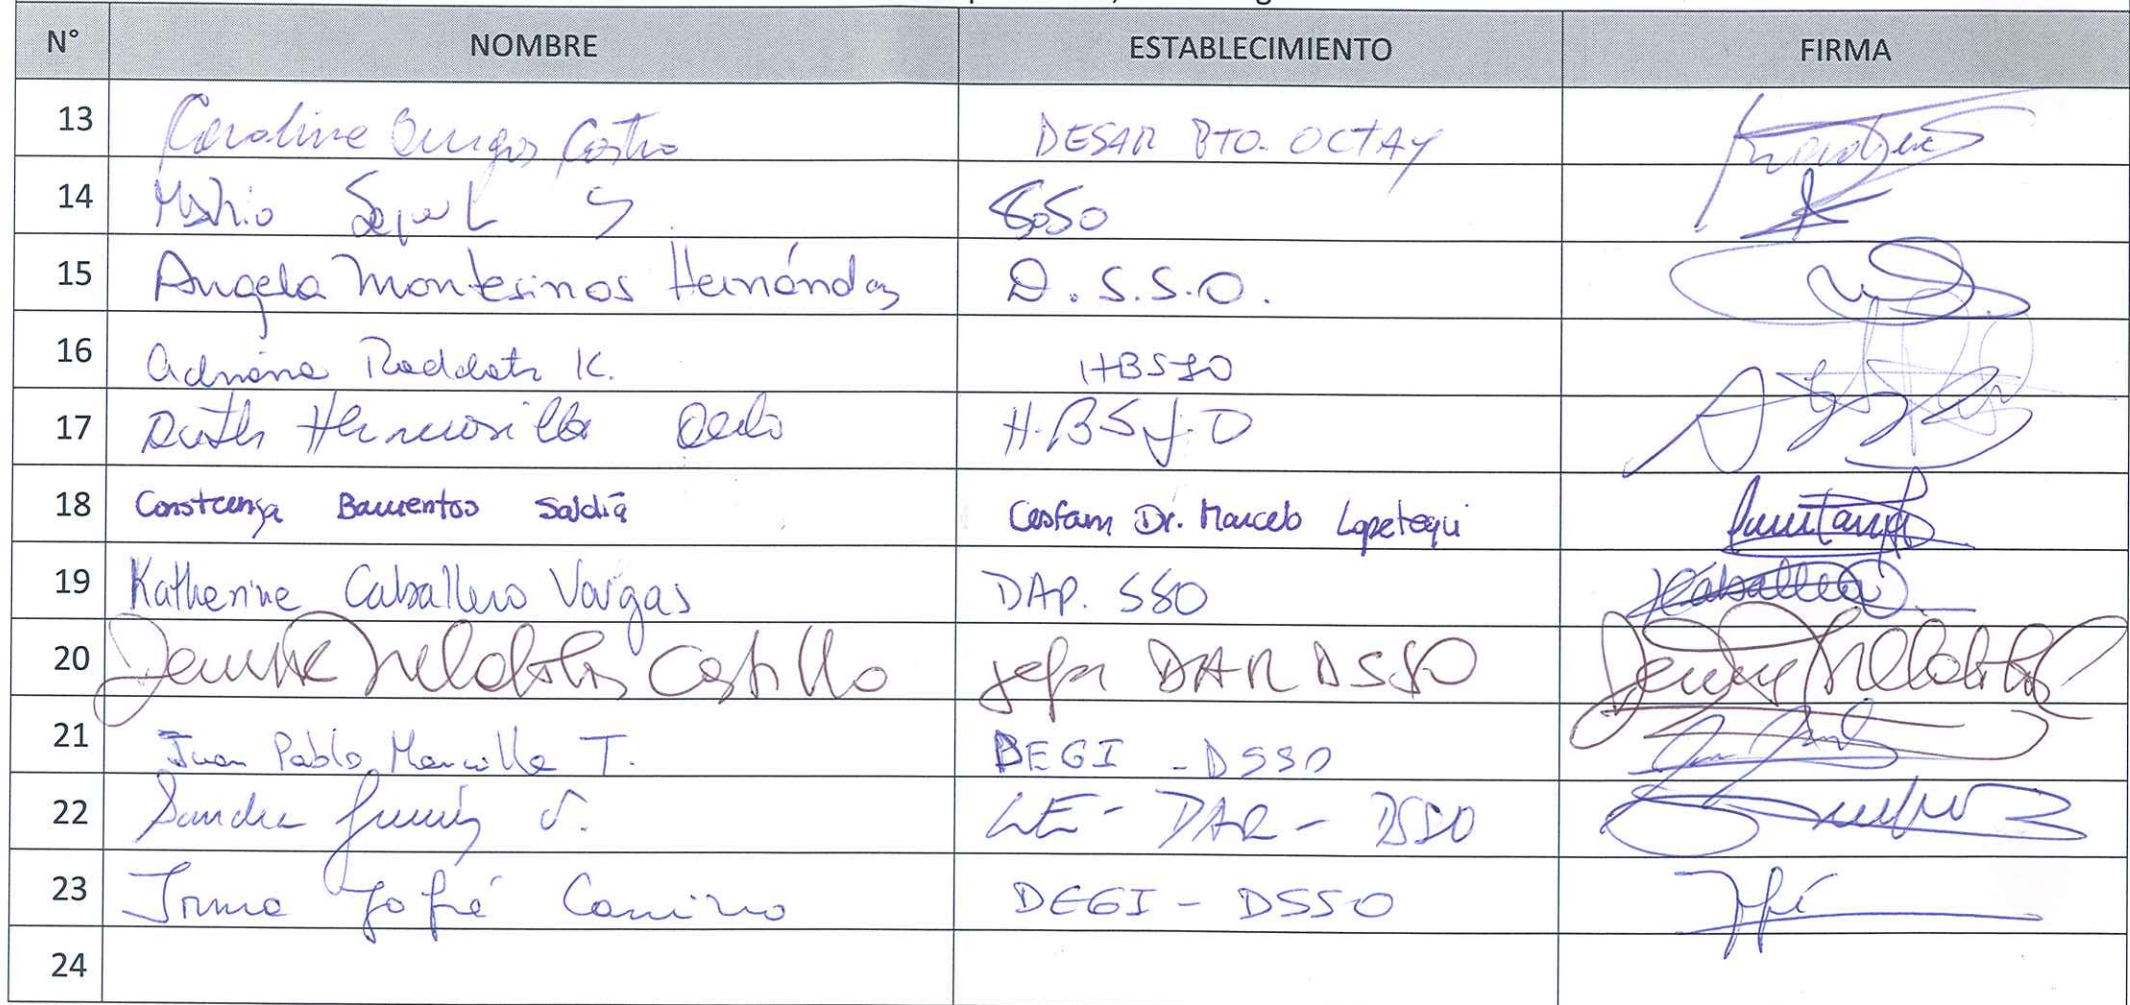 N° NOMBRE ESTABLECIMIENTO FIRMA
13 Caroline Burgos Castro DESAR PTO. OCTAY
14 Mario S. SSO
15 Angela Montesinos Hernández D.S.S.O.
16 Adriana Raddatz K. HBSJO
17 Ruth Hermosilla H.BSJ.O
18 Constanza Barrientos Saldía Cesfam Dr. Marcelo Lopetegui
19 Katherine Caballero Vargas DAP. SSO Kcaballero
20 Castillo jefa DAR DSSO
21 Juan Pablo Mancilla T. DEGI - DSSO
22 Sandra J. LE - DAR - DSSO
23 Irma Jofré Camino DEGI - DSSO
24